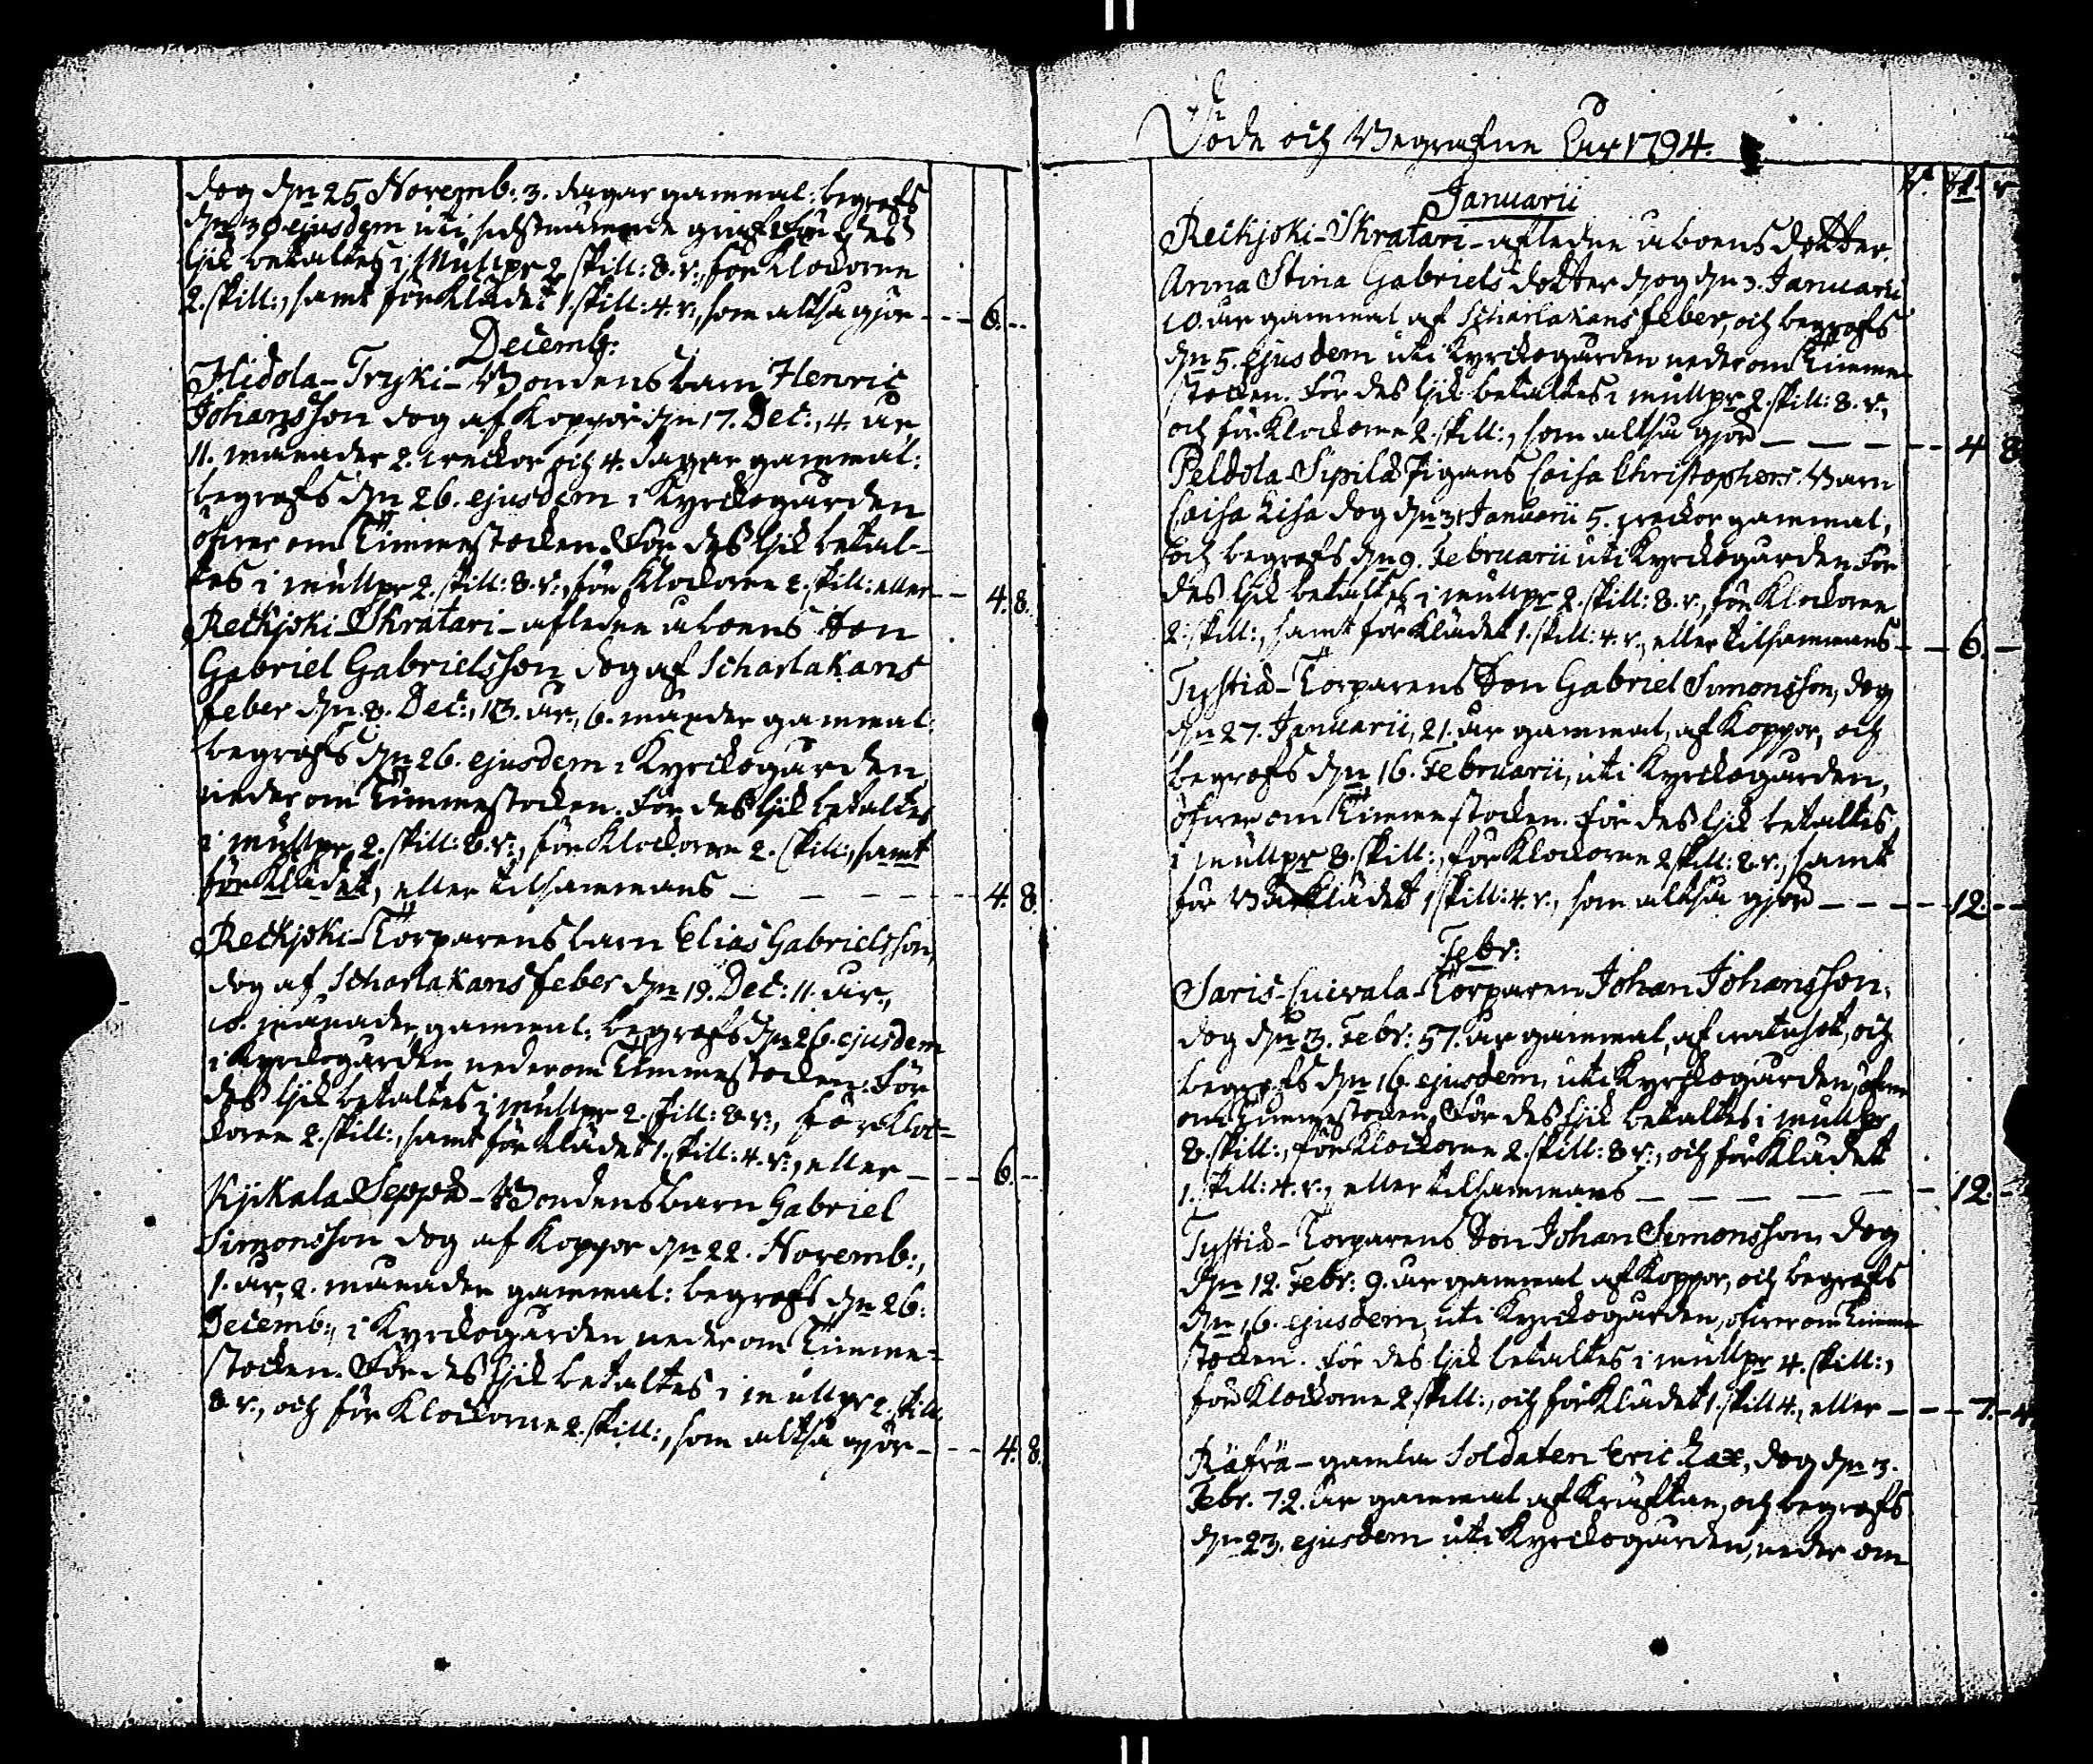 dog d:n 25 Novemb: 3. dagar gammal: begrofs
d:n 30 ejusdem uti graf. För des
lijk betaltes i Mullpr 2 skill: 8. r:, för Klockorne
2. skill:, samt för Klädet 1. skill: 4. r:, som altså gjör - - - 6. --
Decemb:
Hidola-Tryki-Bondens barn Henric
Johansson dog af Koppor d:n 17. Dec:, 4. år
11. månader 2. veckor och 4. dagar gammal:
begrofs d:n 26. ejusdem i Kyrckogården
ofvan om Timmerstocken. För des lijk betal-
tes i mullpr 2. skill: 8. r:, för Klockorne 2. skill: eller - - 4. 8.
Reckjoki-Skratari-afledne åboens Son
Gabriel Gabrielsson dog af Scharlakans
feber d:n 8. Dec:, 13. år, 6. månder gammal:
begrofs d:n 26. ejusdem i Kyrckogården,
neder om Timmestocken. För des lijk betaltes
i mullpr 2. skill: 8. r:, för Klockorne 2. skill:, samt
för Klädet, eller tilsammans - - - - - 4. 8.
Reckjoki-Torparens barn Elias Gabrielsson,
dog af Scharlakansfeber d:n 19. Dec: 11. år,
10. månader gammal: begrofs d:n 26. ejusdem
i Kyrckogården neder om Timmestocken: För
des lijk betaltes i mullpr 2. skill: 8 r:, för Kloc-
korne 2. skill:, samt för Klädet 1. skill: 4. r:, eller - - - 6. --
Kjikala-Seppä-Bondens barn Gabriel
Simonsson dog af Koppor d:n 22. Novemb:,
1. år, 2. månader gammal: begrofs d:n 26.
Decemb:, i Kyrckogården neder om Timme-
stocken. För des lijk betaltes i mullpr 2. skill.
8 r:, och för Klockorne 2. skill:, som altså gjör - - - 4. 8.
Döde och Begrafne Åhr 1794.
Januarii
Reckjoki-Skratari-afledne åboens dotter
Anna Stina Gabriels dotter dog d:n 3. Januarii
10. år gammal af Scharlakansfeber, och begrofs
d:n 5. ejusdem uti Kyrckogården neder om Timme
stocken. För des lijk betaltes i mullpr 2. skill: 8. r:,
och för Klockorne 2. skill:, som altså gjör - - - - 4 8
Peldola-Sipilä Pigans Caisa Christophers. Barn
Caisa Lisa dog d:n 31 Januarii 5. veckor gammal,
och begrofs d:n 9. Februarii uti Kyrckogården. För
des lijk betaltes i mullpr 2. skill: 8. r:, för Klockorne
2. skill:, samt för Klädet 1. skill: 4. r:, eller tilsammans - - 6. -
Tystiä-Torparens Son Gabriel Simonsson, dog
d:n 27. Januarii, 21. år gammal, af Koppor, och
begrofs d:n 16. Februarii, uti Kyrckogården,
ofvan om Timmestocken. För des lijk betaltes
i mullpr 8. skill:, för Klockorne 2 skill: 8. r:, samt
för Bårklädet 1 skill: 4. r., som altså gjör - - - - 12. --
Febr:
Saris-Cuivala-Torparen Johan Johansson,
dog d:n 3. Febr: 57. år gammal, af watusot, och
begrofs d:n 16. ejusdem, uti Kyrckogården, ofvan
om Timmestocken. För des lijk betaltes i mullpr
8. skill:, för Klockorne 2. skill: 8 r:, och för Klädet
1. skill: 4. r., eller tilsammans - - - - - - 12. -
Tystiä-Torparens Son Johan Simonsson dog
d:n 12. Febr: 9. år gammal af Koppor, och begrofs
d:n 16. ejusdem, uti Kyrckogården, ofvan om Timme
stocken. För des lijk betaltes i mullpr 4. skill:,
för Klockorne 2 skill:, och för Klädet 1. skill 4., eller - - - 7. - 4.
Räfrä-gamla Soldaten Eric Lax, dog d:n 3.
Febr. 72. år gammal af Kräftan, och begrofs
d:n 23. ejusdem uti Kyrckogården, neder om